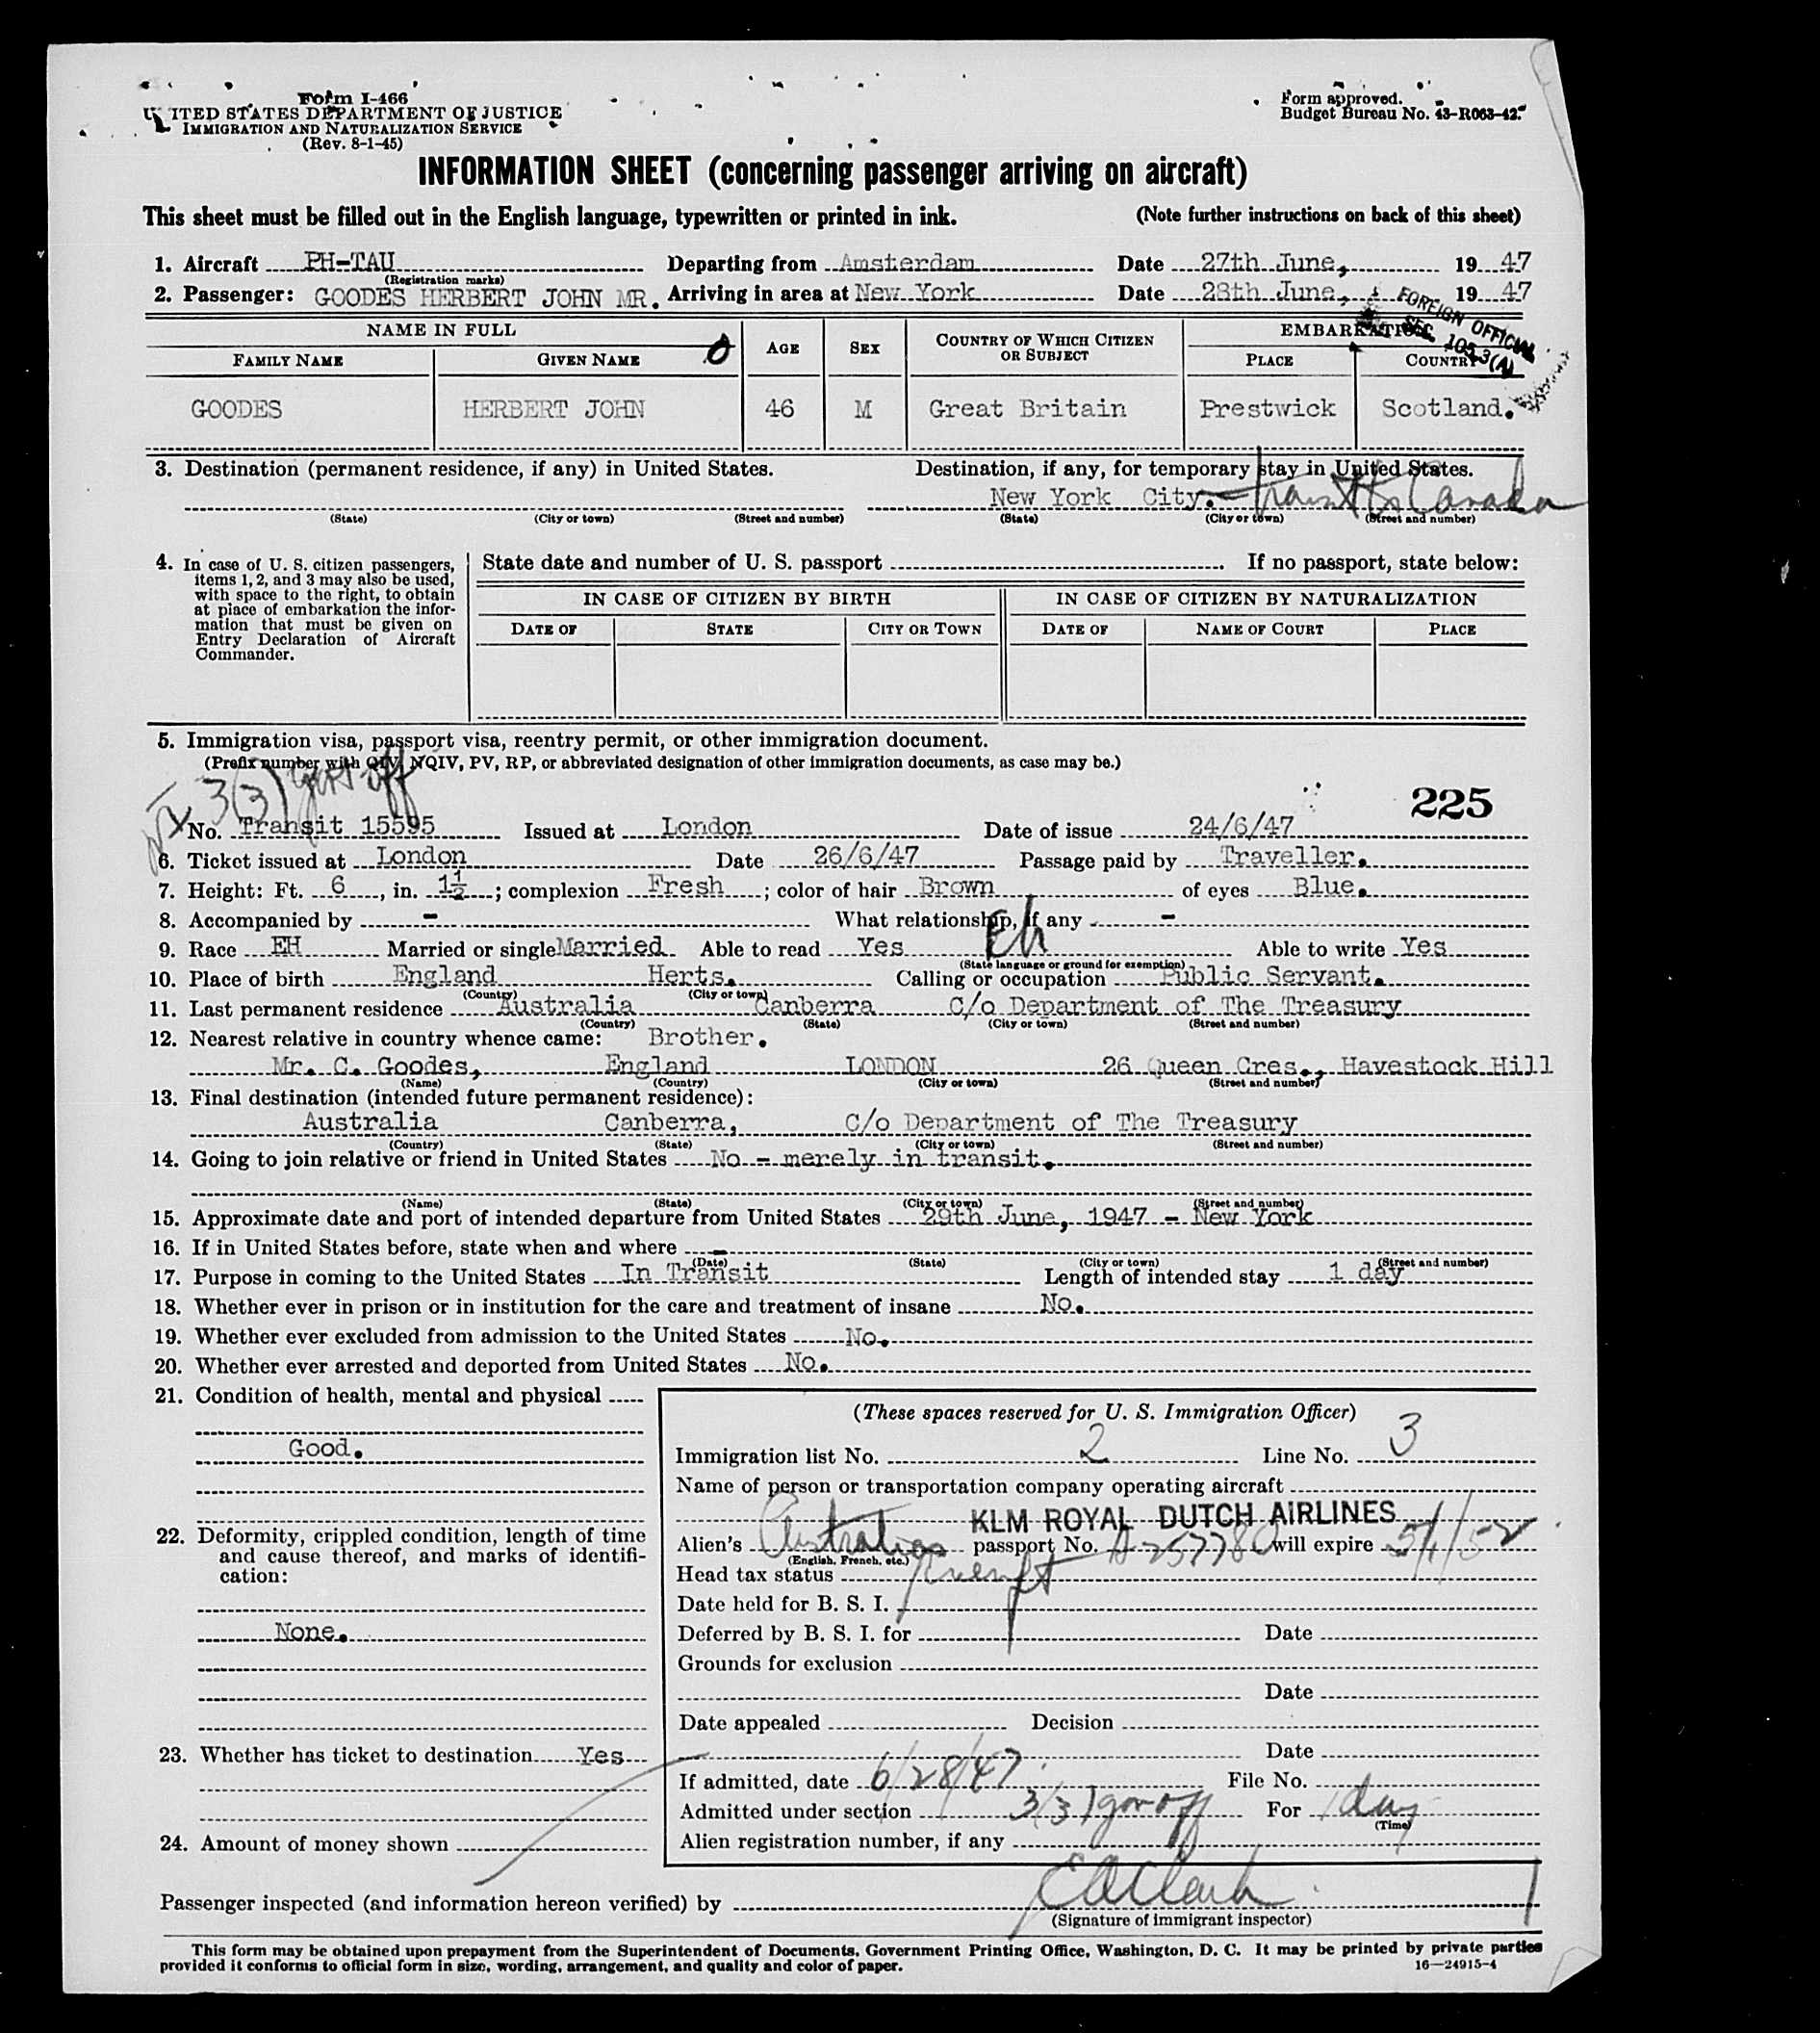 Form I-466
UNITED STATES DEPARTMENT OF JUSTICE
IMMIGRATION AND NATURALIZATION SERVICE
(Rev. 8-1-45)
Form approved.
Budget Bureau No. 43-R063-42.
INFORMATION SHEET (concerning passenger arriving on aircraft)
This sheet must be filled out in the English language, typewritten or printed in ink. (Note further instructions on back of this sheet)
1. Aircraft PH-TAU Departing from Amsterdam Date 27th June, 19 47
(Registration marks)
2. Passenger: GOODES HERBERT JOHN MR. Arriving in area at New York Date 28th June, 19 47
FOREIGN OFFICIAL
SEC. 105.3(A)
NAME IN FULL AGE SEX COUNTRY OF WHICH CITIZEN OR SUBJECT EMBARKATION
FAMILY NAME GIVEN NAME PLACE COUNTRY
GOODES HERBERT JOHN 46 M Great Britain Prestwick Scotland.
3. Destination (permanent residence, if any) in United States. Destination, if any, for temporary stay in United States.
New York City. - transit to Canada
(State) (City or town) (Street and number) (State) (City or town) (Street and number)
4. In case of U. S. citizen passengers, items 1, 2, and 3 may also be used, with space to the right, to obtain at place of embarkation the information that must be given on Entry Declaration of Aircraft Commander.
State date and number of U. S. passport If no passport, state below:
IN CASE OF CITIZEN BY BIRTH IN CASE OF CITIZEN BY NATURALIZATION
DATE OF STATE CITY OR TOWN DATE OF NAME OF COURT PLACE
5. Immigration visa, passport visa, reentry permit, or other immigration document.
(Prefix number with QIV, NQIV, PV, RP, or abbreviated designation of other immigration documents, as case may be.)
3(3) gov off
225
No. Transit 15595 Issued at London Date of issue 24/6/47
6. Ticket issued at London Date 26/6/47 Passage paid by Traveller.
7. Height: Ft. 6, in. 1½; complexion Fresh; color of hair Brown of eyes Blue.
8. Accompanied by - What relationship, if any -
9. Race EH Married or single Married Able to read Yes Eh Able to write Yes
(State language or ground for exemption)
10. Place of birth England Herts. Calling or occupation Public Servant.
(Country) (City or town)
11. Last permanent residence Australia Canberra C/o Department of The Treasury
(Country) (State) (City or town) (Street and number)
12. Nearest relative in country whence came: Brother.
Mr. C. Goodes, England LONDON 26 Queen Cres., Havestock Hill
(Name) (Country) (City or town) (Street and number)
13. Final destination (intended future permanent residence):
Australia Canberra, C/o Department of The Treasury
(Country) (State) (City or town) (Street and number)
14. Going to join relative or friend in United States No - merely in transit.
(Name) (State) (City or town) (Street and number)
15. Approximate date and port of intended departure from United States 29th June, 1947 - New York
16. If in United States before, state when and where -
(Date) (State) (City or town) (Street and number)
17. Purpose in coming to the United States In Transit Length of intended stay 1 day
18. Whether ever in prison or in institution for the care and treatment of insane No.
19. Whether ever excluded from admission to the United States No.
20. Whether ever arrested and deported from United States No.
21. Condition of health, mental and physical
Good.
22. Deformity, crippled condition, length of time and cause thereof, and marks of identification:
None.
23. Whether has ticket to destination Yes
24. Amount of money shown
(These spaces reserved for U. S. Immigration Officer)
Immigration list No. 2 Line No. 3
Name of person or transportation company operating aircraft
KLM ROYAL DUTCH AIRLINES
Alien's Australian passport No. A 257780 will expire 5/1/52
(English, French, etc.)
Head tax status exempt
Date held for B. S. I.
Deferred by B. S. I. for Date
Grounds for exclusion
Date
Date appealed Decision
Date
If admitted, date 6/28/47 File No.
Admitted under section 3(3) gov off For 1 day
(Time)
Alien registration number, if any
Passenger inspected (and information hereon verified) by E A Clark
(Signature of immigrant inspector)
This form may be obtained upon prepayment from the Superintendent of Documents, Government Printing Office, Washington, D. C. It may be printed by private parties
provided it conforms to official form in size, wording, arrangement, and quality and color of paper.
16—24915-4